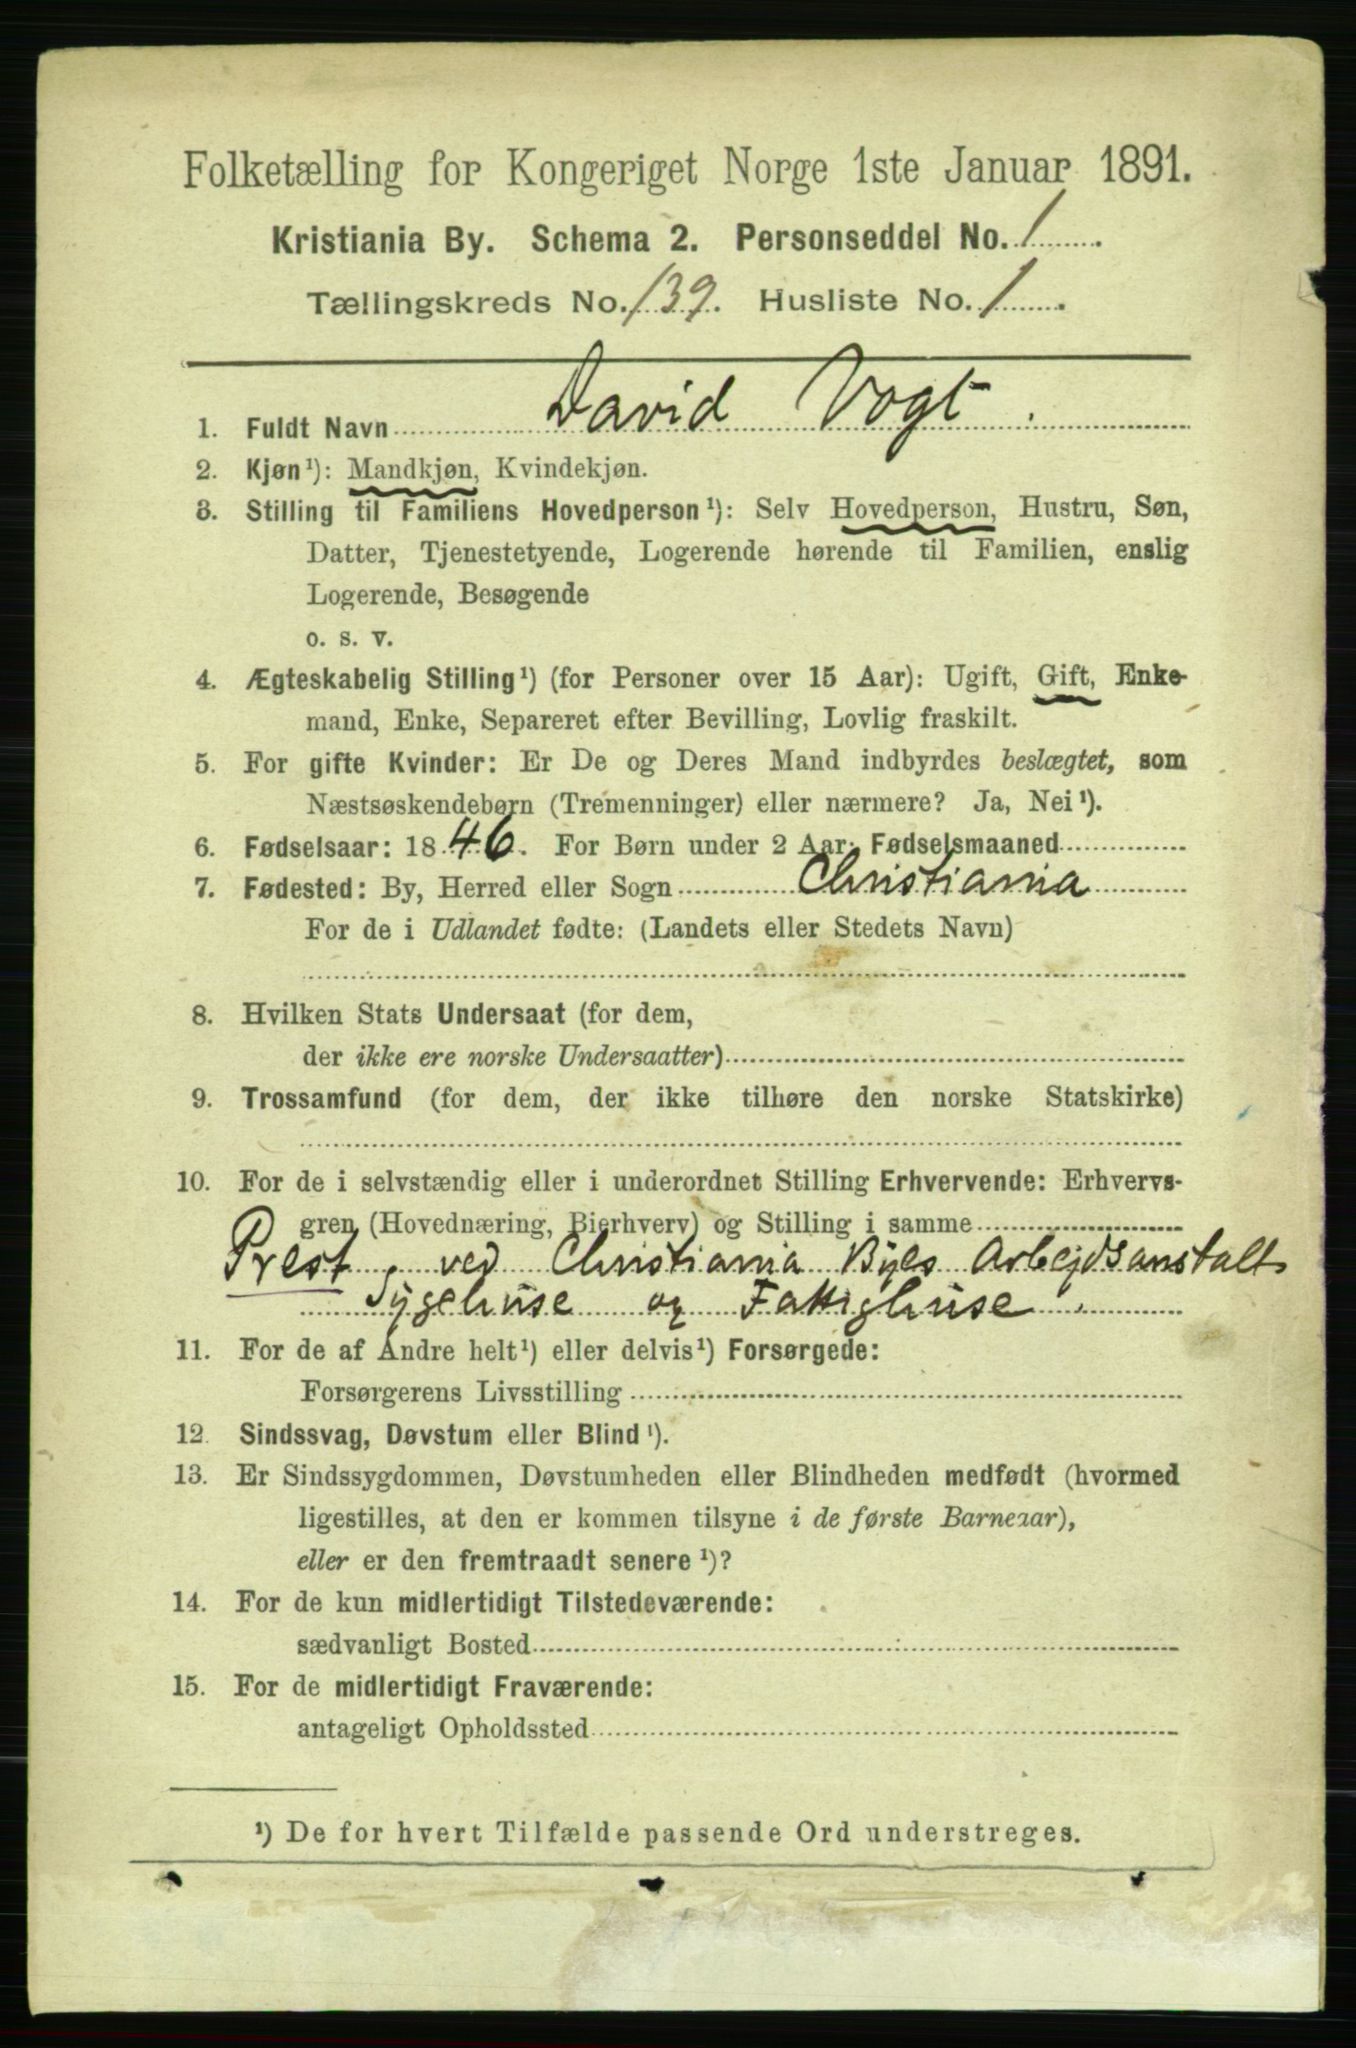 Folketælling for Kongeriget Norge 1ste Januar 1891.
Kristiania By. Schema 2. Personseddel No. 1
Tællingskreds No. 139. Husliste No. 1
1. Fuldt Navn David Vogt.
2. Kjøn¹): Mandkjøn, Kvindekjøn.
3. Stilling til Familiens Hovedperson¹): Selv Hovedperson, Hustru, Søn,
Datter, Tjenestetyende, Logerende hørende til Familien, enslig
Logerende, Besøgende
o. s. v.
4. Ægteskabelig Stilling¹) (for Personer over 15 Aar): Ugift, Gift, Enke-
mand, Enke, Separeret efter Bevilling, Lovlig fraskilt.
5. For gifte Kvinder: Er De og Deres Mand indbyrdes beslægtet, som
Næstsøskendebørn (Tremenninger) eller nærmere? Ja, Nei¹).
6. Fødselsaar: 1846. For Børn under 2 Aar: Fødselsmaaned
7. Fødested: By, Herred eller Sogn Christiania
For de i Udlandet fødte: (Landets eller Stedets Navn)
8. Hvilken Stats Undersaat (for dem,
der ikke ere norske Undersaatter)
9. Trossamfund (for dem, der ikke tilhøre den norske Statskirke)
10. For de i selvstændig eller i underordnet Stilling Erhvervende: Erhvervs-
gren (Hovednæring, Bierhverv) og Stilling i samme
Prest, ved Christiania Byes Arbejdsanstalt
Sygehuse og Fattighuse.
11. For de af Andre helt¹) eller delvis¹) Forsørgede:
Forsørgerens Livsstilling
12. Sindssvag, Døvstum eller Blind¹).
13. Er Sindssygdommen, Døvstumheden eller Blindheden medfødt (hvormed
ligestilles, at den er kommen tilsyne i de første Barneaar),
eller er den fremtraadt senere¹)?
14. For de kun midlertidigt Tilstedeværende:
sædvanligt Bosted
15. For de midlertidigt Fraværende:
antageligt Opholdssted
¹) De for hvert Tilfælde passende Ord understreges.